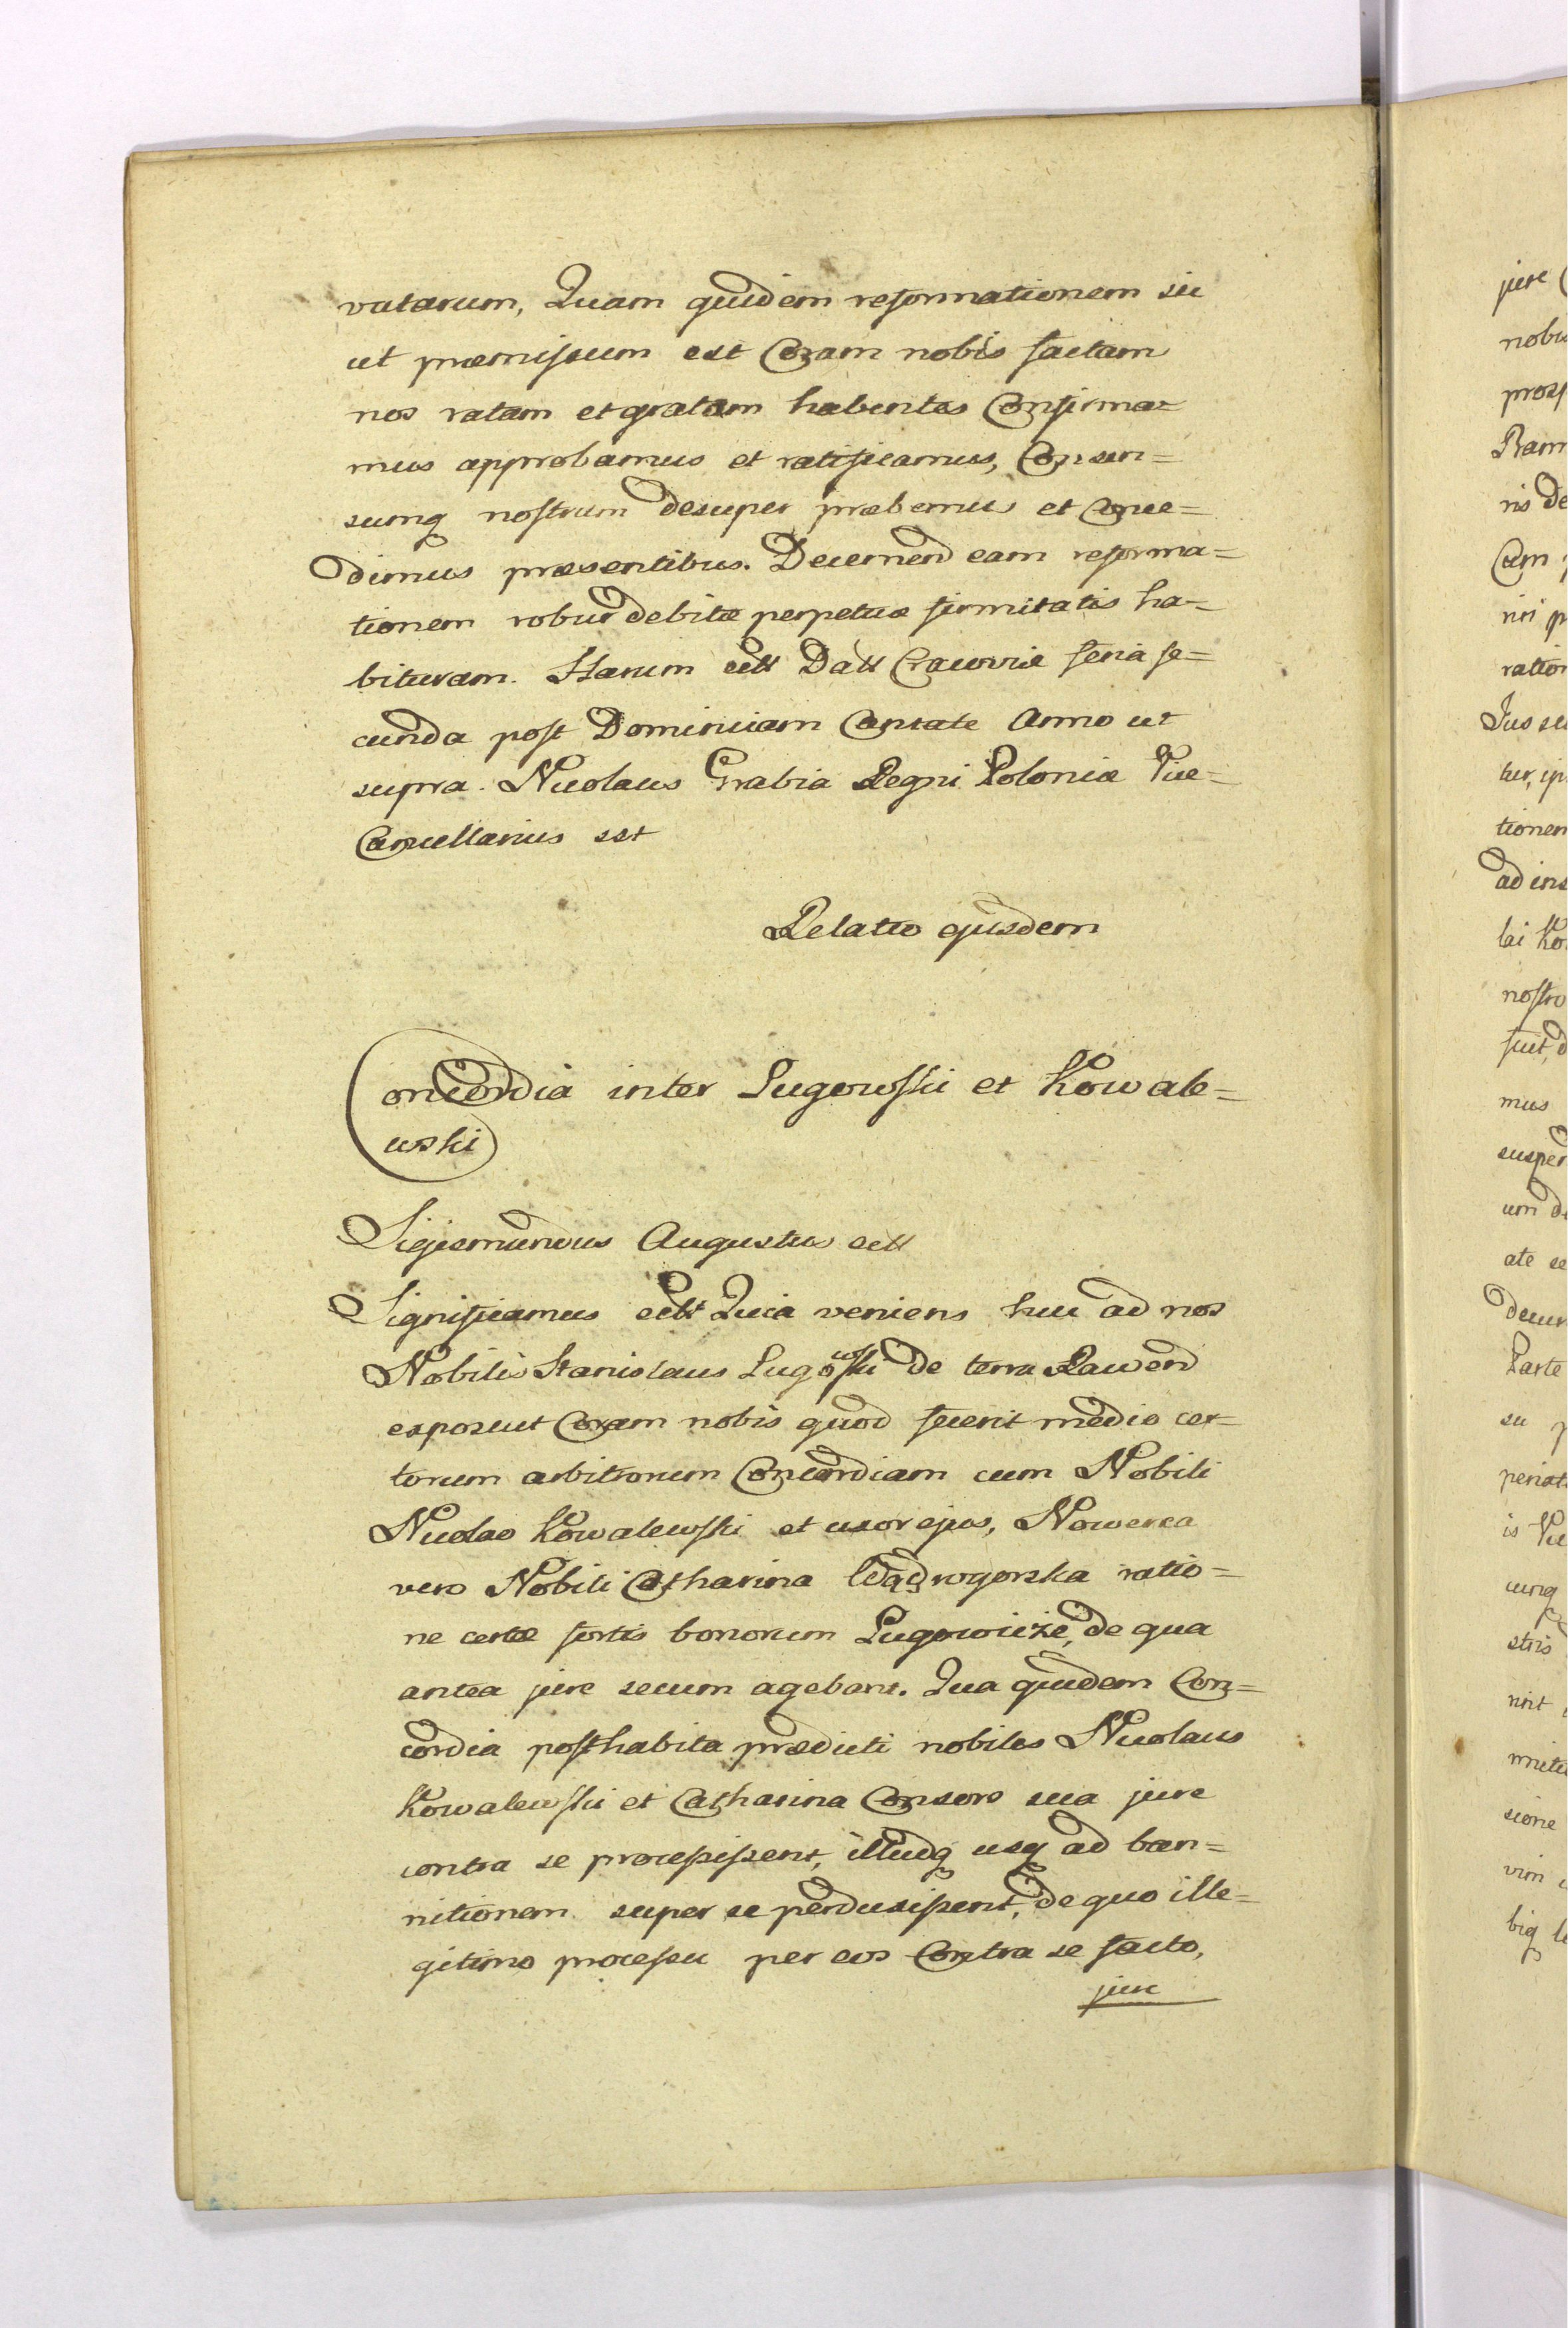 vatarum, Quam quidem reformationem sic
ut præmissum est Coram nobis factam
nos ratam et gratam habentes Confirma=
mus approbamus et ratificamus, Consen=
sumq nostrum desuper præbemus et Conce=
dimus præsentibus. Decernend eam reforma=
tionem robur debitæ perpetuæ firmitatis ha=
bituram. Harum ett Datt Cracoviæ feria se=
cunda post Dominicam Cantate Anno ut
supra. Nicolaus Grabia Regni Poloniæ Vice=
Cancellarius sst
Relatio ejusdem
Concordia inter Lugowski et Kowale=
wski
Sigismundus Augustus ett
Significamus ett Quia veniens huc ad nos
Nobilis Stanislaus Lugowski de terra Rawend
exposuit Coram nobis quod fecerit medio cer=
torum arbitrorum Concordiam cum Nobili
Nicolao Kowalewski et uxor ejus, Nowerca
vero Nobili Catharina ratio=
ne certæ sortis bonorum Lugowicze, de qua
antea jure secum agebant. Qua quidem Con=
cordia posthabita prædicti nobiles Nicolaus
Kowalewski et Catharina Consors sua jure
contra se processissent, illudq usq ad ban=
nitionem super se perduxissent, de quo ille=
gitimo processu per eos Contra se facto,
jure
jure
nobis
Ram
ris de
Cum
ration
tionem
ad ins
lai Ko
nostro
fuit, d
mus
um de
ate se
Parte
is Vic
cumq
stris
sione
vim